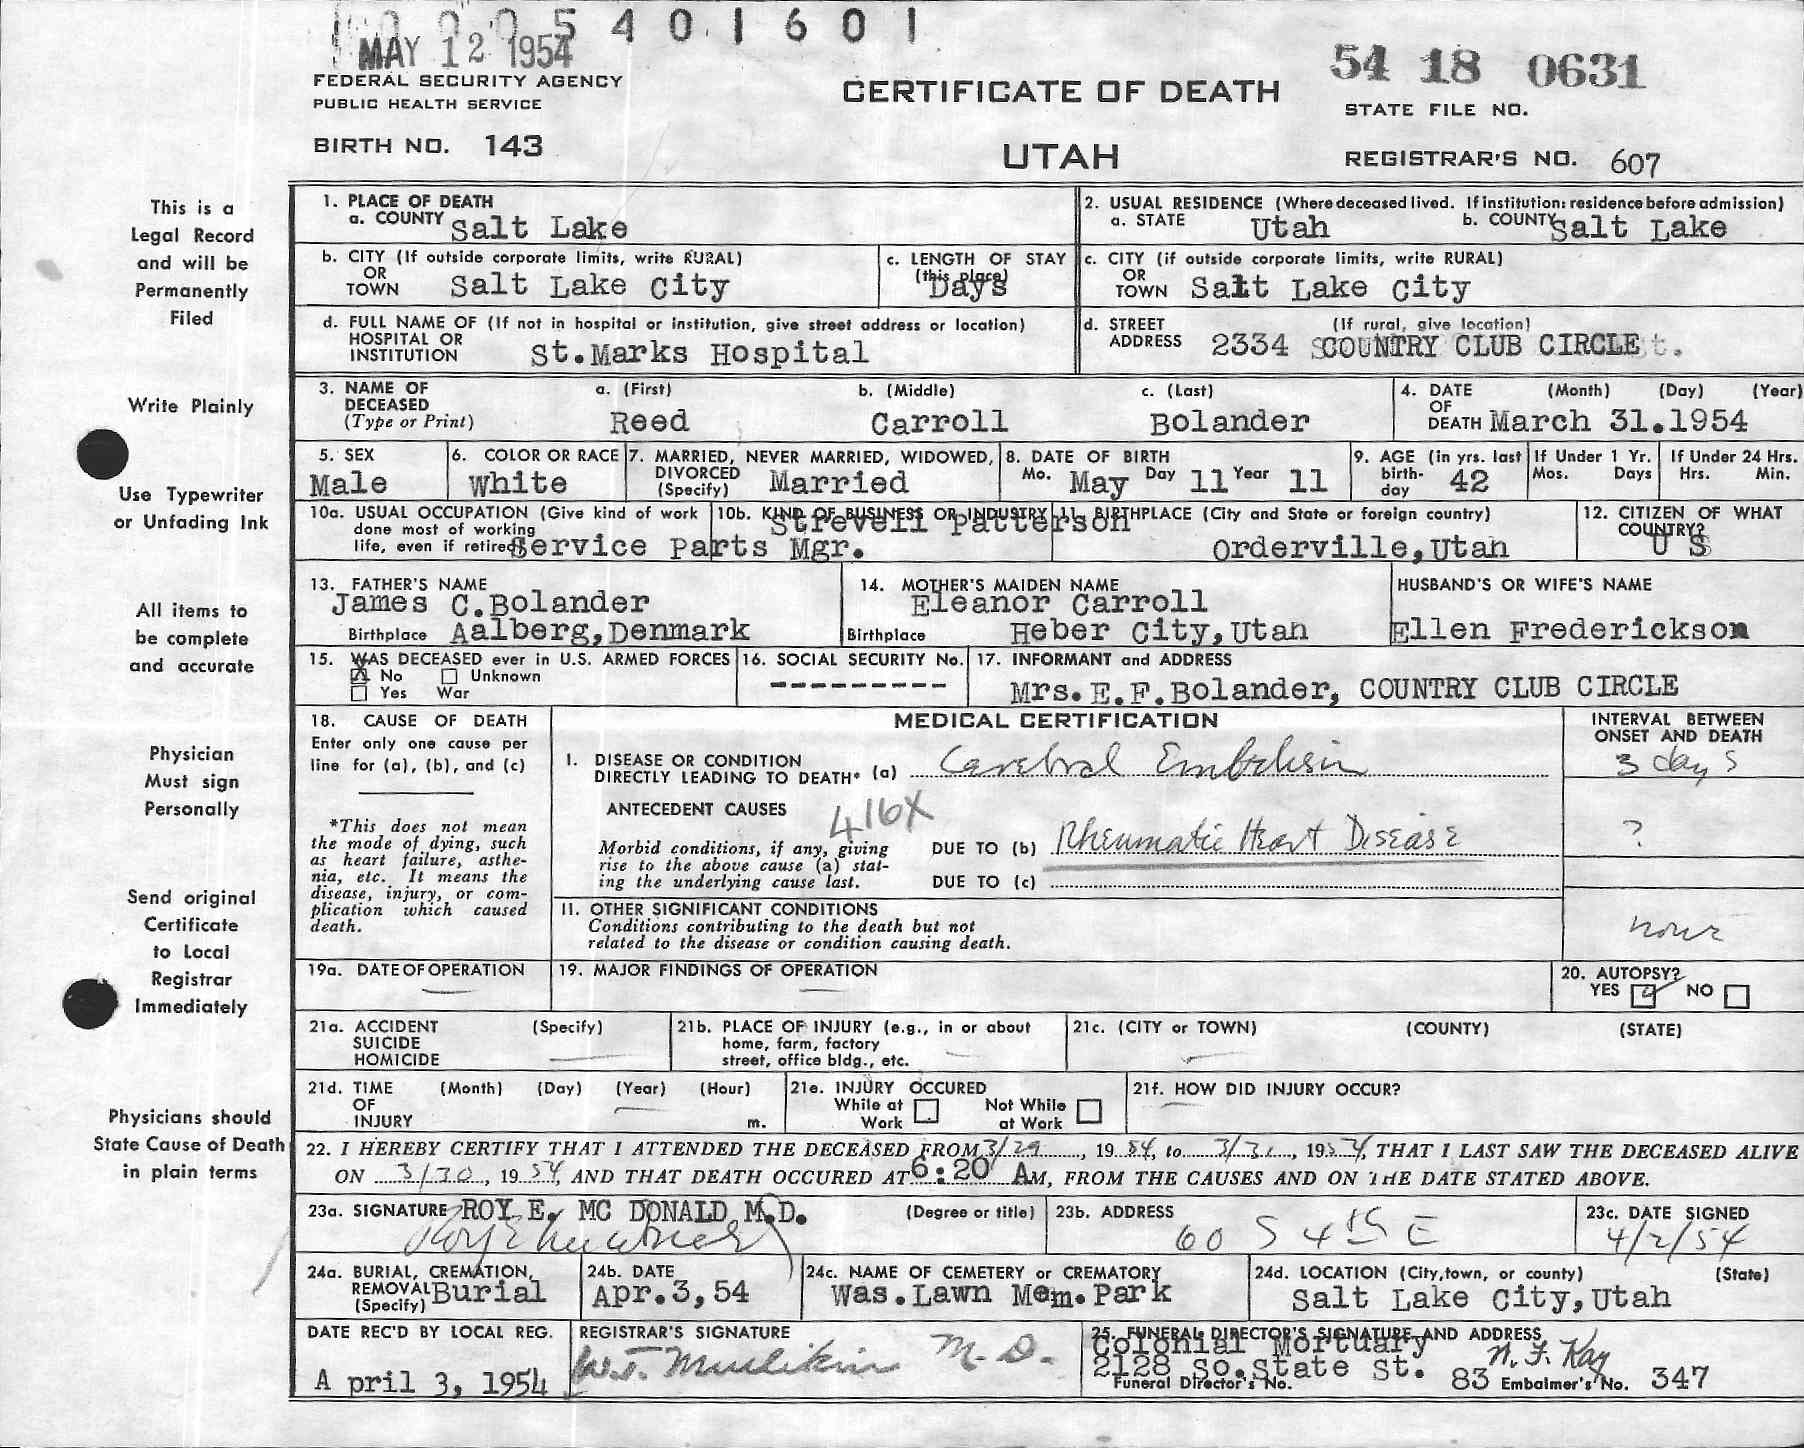 5 4 0 1 6 0 1
MAY 12 1954
54 18 0631
FEDERAL SECURITY AGENCY
PUBLIC HEALTH SERVICE
CERTIFICATE OF DEATH
STATE FILE NO.
BIRTH NO. 143
UTAH
REGISTRAR'S NO. 607
This is a
Legal Record
and will be
Permanently
Filed
Write Plainly
Use Typewriter
or Unfading Ink
All items to
be complete
and accurate
Physician
Must sign
Personally
Send original
Certificate
to Local
Registrar
Immediately
Physicians should
State Cause of Death
in plain terms
1. PLACE OF DEATH
a. COUNTY Salt Lake
2. USUAL RESIDENCE (Where deceased lived. If institution: residence before admission)
a. STATE Utah b. COUNTY Salt Lake
b. CITY (If outside corporate limits, write RURAL)
OR
TOWN Salt Lake City
c. LENGTH OF STAY
(this place)
Days
c. CITY (if outside corporate limits, write RURAL)
OR
TOWN Salt Lake City
d. FULL NAME OF (If not in hospital or institution, give street address or location)
HOSPITAL OR
INSTITUTION St.Marks Hospital
d. STREET (If rural, give location)
ADDRESS 2334 COUNTRY CLUB CIRCLE
3. NAME OF a. (First) b. (Middle) c. (Last)
DECEASED
(Type or Print) Reed Carroll Bolander
4. DATE (Month) (Day) (Year)
OF
DEATH March 31.1954
5. SEX
Male
6. COLOR OR RACE
White
7. MARRIED, NEVER MARRIED, WIDOWED,
DIVORCED
(Specify) Married
8. DATE OF BIRTH
Mo. May Day 11 Year 11
9. AGE (in yrs. last
birth-
day 42
If Under 1 Yr.
Mos. Days
If Under 24 Hrs.
Hrs. Min.
10a. USUAL OCCUPATION (Give kind of work
done most of working
life, even if retired Service Parts Mgr.
10b. KIND OF BUSINESS OR INDUSTRY
Strevell Patterson
11. BIRTHPLACE (City and State or foreign country)
Orderville,Utah
12. CITIZEN OF WHAT
COUNTRY?
U S
13. FATHER'S NAME
James C.Bolander
Birthplace Aalberg,Denmark
14. MOTHER'S MAIDEN NAME
Eleanor Carroll
Birthplace Heber City,Utah
HUSBAND'S OR WIFE'S NAME
Ellen Frederickson
15. WAS DECEASED ever in U.S. ARMED FORCES
X No Unknown
Yes War
16. SOCIAL SECURITY No.
----------
17. INFORMANT and ADDRESS
Mrs.E.F.Bolander, COUNTRY CLUB CIRCLE
18. CAUSE OF DEATH
Enter only one cause per
line for (a), (b), and (c)
*This does not mean
the mode of dying, such
as heart failure, asthe-
nia, etc. It means the
disease, injury, or com-
plication which caused
death.
MEDICAL CERTIFICATION
INTERVAL BETWEEN
ONSET AND DEATH
I. DISEASE OR CONDITION
DIRECTLY LEADING TO DEATH* (a) Cerebral Embolism
3 days
ANTECEDENT CAUSES
416X
Morbid conditions, if any, giving
rise to the above cause (a) stat-
ing the underlying cause last.
DUE TO (b) Rheumatic Heart Disease
?
DUE TO (c)
II. OTHER SIGNIFICANT CONDITIONS
Conditions contributing to the death but not
related to the disease or condition causing death.
19a. DATE OF OPERATION
19. MAJOR FINDINGS OF OPERATION
20. AUTOPSY?
YES NO
21a. ACCIDENT (Specify)
SUICIDE
HOMICIDE
21b. PLACE OF INJURY (e.g., in or about
home, farm, factory
street, office bldg., etc.
21c. (CITY or TOWN) (COUNTY) (STATE)
21d. TIME (Month) (Day) (Year) (Hour)
OF
INJURY m.
21e. INJURY OCCURED
While at Not While
Work at Work
21f. HOW DID INJURY OCCUR?
22. I HEREBY CERTIFY THAT I ATTENDED THE DECEASED FROM 3/29, 19 54, to 3/31, 1954, THAT I LAST SAW THE DECEASED ALIVE
ON 3/30, 19 54, AND THAT DEATH OCCURED AT 6:20 AM, FROM THE CAUSES AND ON THE DATE STATED ABOVE.
23a. SIGNATURE ROY E. MC DONALD M.D. (Degree or title)
23b. ADDRESS
60 S 4th E
23c. DATE SIGNED
4/2/54
24a. BURIAL, CREMATION,
REMOVAL
(Specify) Burial
24b. DATE
Apr.3,54
24c. NAME OF CEMETERY or CREMATORY
Was.Lawn Mem.Park
24d. LOCATION (City,town, or county) (State)
Salt Lake City,Utah
DATE REC'D BY LOCAL REG.
A pril 3, 1954
REGISTRAR'S SIGNATURE
M. D.
25. FUNERAL DIRECTOR'S SIGNATURE AND ADDRESS
Colonial Mortuary
2128 So.State St.
Funeral Director's No. 83 Embalmer's No. 347